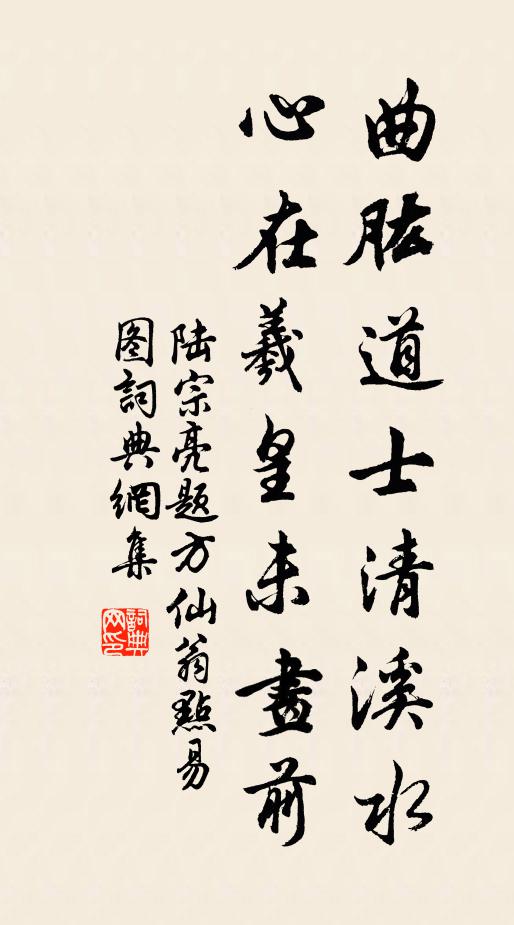 曲肱道士清溪水
心在羲皇未畫前
陆宗亮题方仙翁點易
图詞典網集
詞典网印